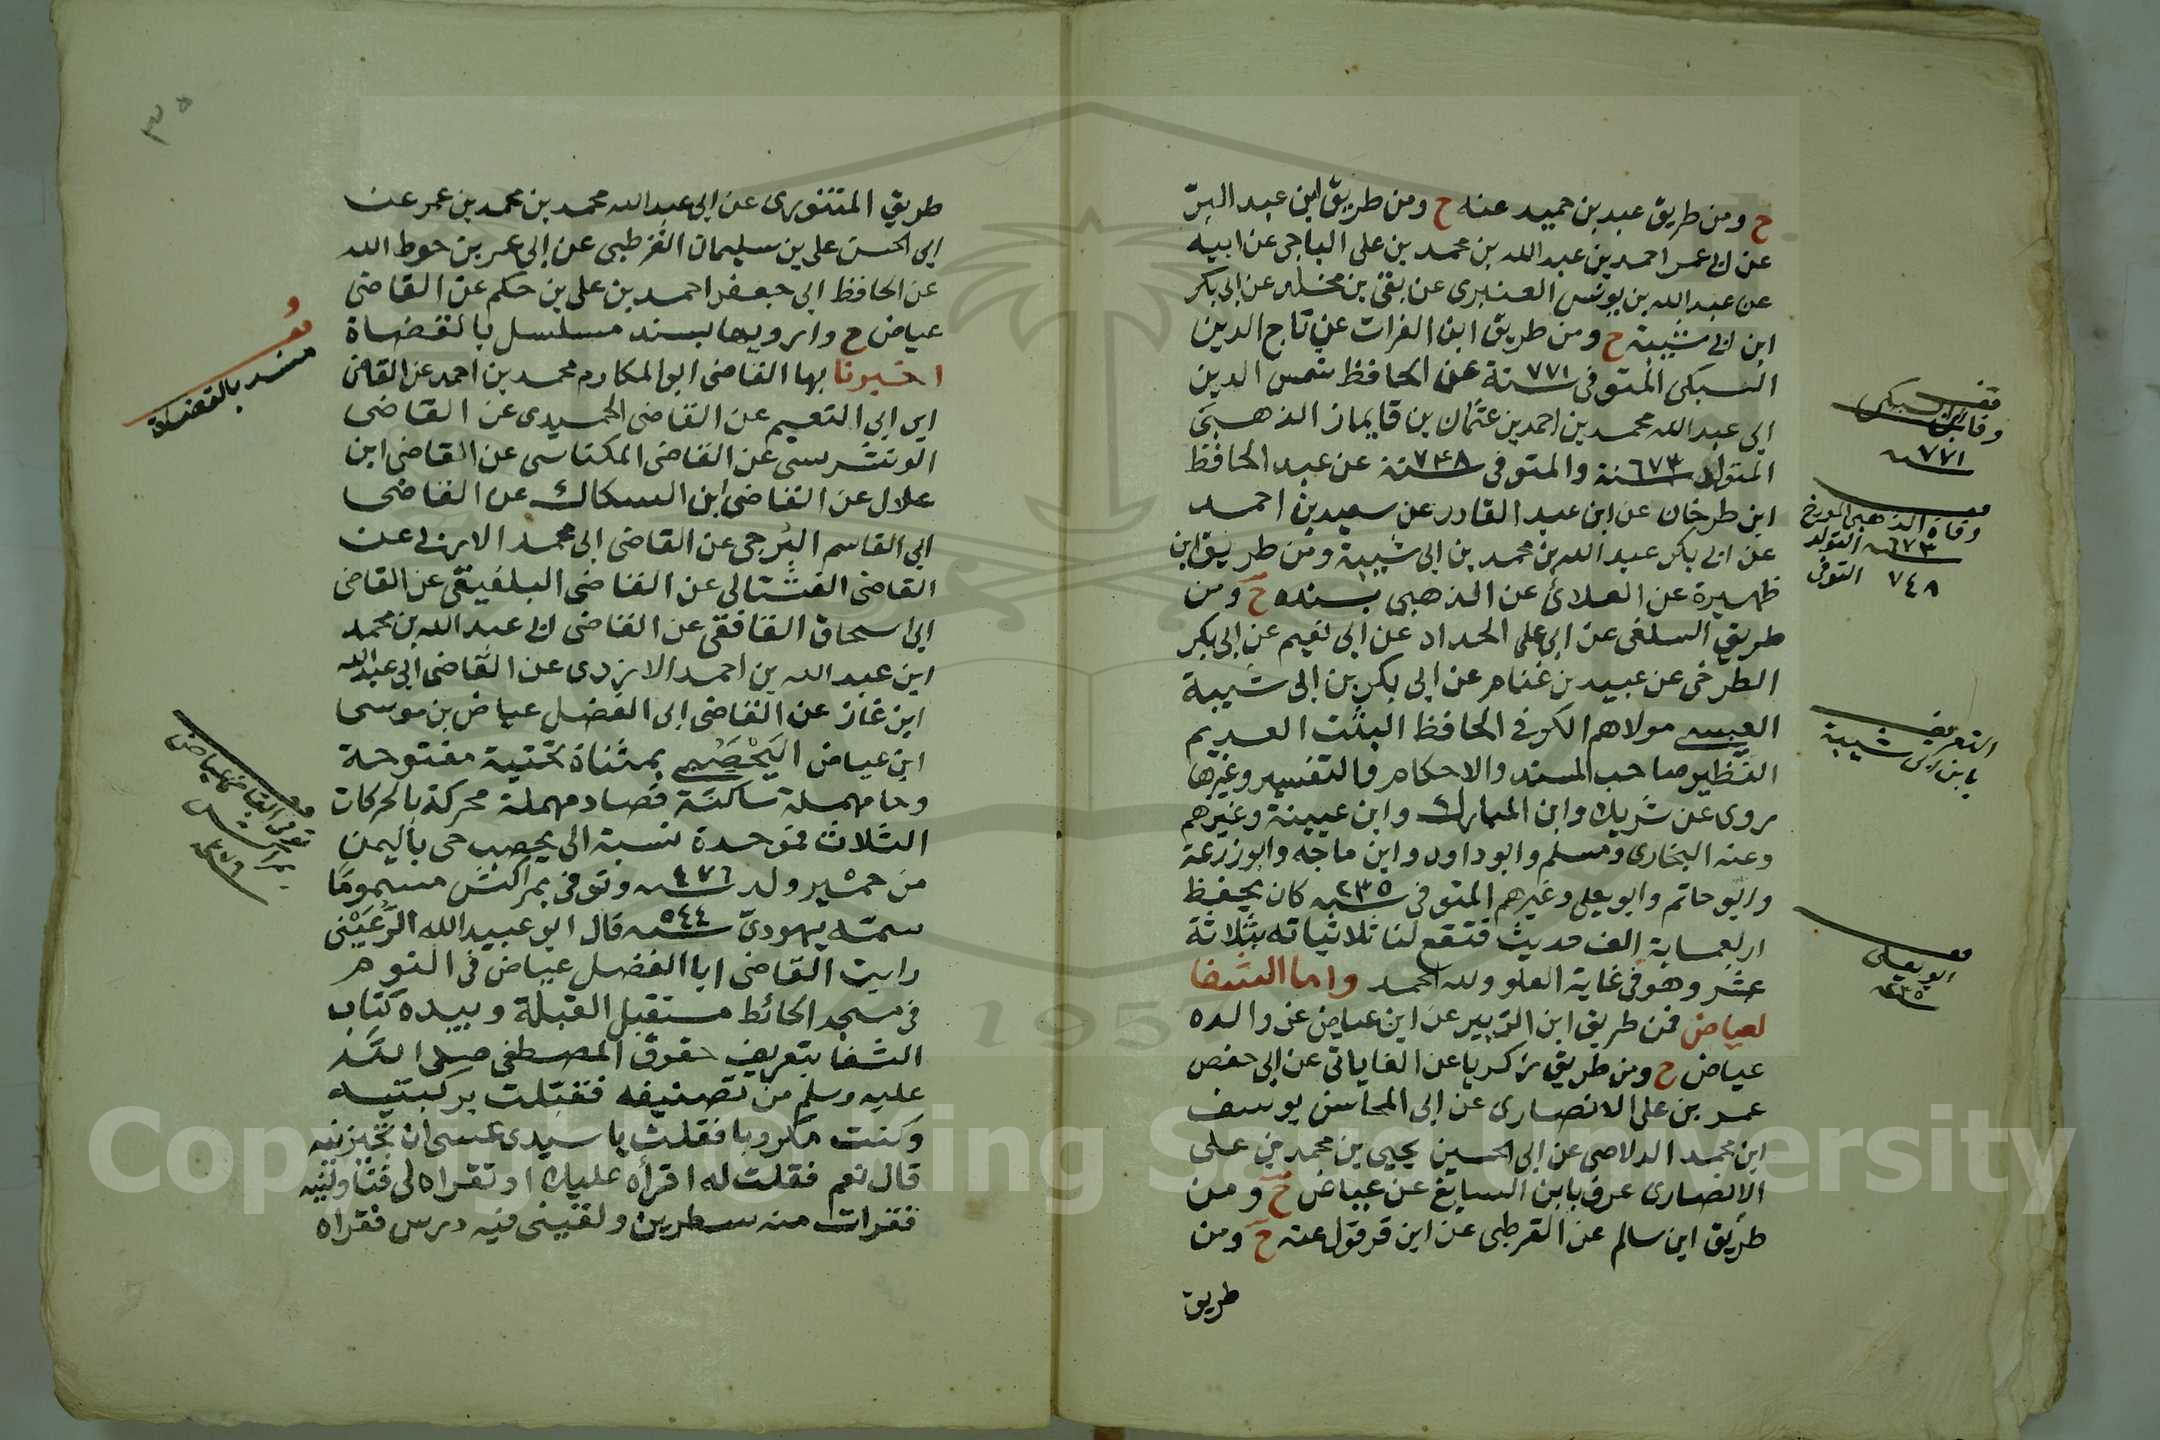 ح ومن طريق عبد بن حميد عنه ح ومن طريق ابن عبد البرّ
عن ابى عمر احمد بن عبد الله بن محمد بن على الباجى عن ابيه
عن عبد الله بن يونس العنبرى عن بقى بن مخلد عن ابى بكر
ابن ابى شيبة ح ومن طريق ابن الفرات عن تاج الدين
السبكى المتوفى ٧٧١ سنة عن الحافظ شمس الدين
ابى عبد الله محمد بن احمد بن عثمان بن قايماز الذهبى
المتولد ٦٧٣ سنة والمتوفى ٧٤٨ سنة عن عبد الحافظ
ابن طرخان عن ابن عبد القادر عن سعيد بن احمد
عن ابى بكر عبد الله بن محمد بن ابى شيبة ومن طريق ابن
ظهيرة عن العلائ عن الذهبى بسنده ح ومن
طريق السلفى عن ابى على الحداد عن ابى نعيم عن ابى بكر
الطرخى عن عبيد بن غنام عن ابى بكر بن ابى شيبة
العبسى مولاهم الكوفى الحافظ الثبت العديم
النظير صاحب المسند والاحكام والتفسير وغيرها
روى عن شريك وابن المبارك وابن عيينة وغيرهم
وعنه البخارى ومسلم وابو داود وابن ماجه وابو زرعة
وابو حاتم وابو يعلى وغيرهم المتوفى ٢٣٥ سنه كان يحفظ
اربعماية الف حديث فتقع لنا ثلاثياته بثلاثة
عشر وهو فى غاية العلو ولله الحمد واما الشفا
لعياض فمن طريق ابن الزبير عن ابن عياض عن والده
عياض ح ومن طريق زكريا عن القاياتى عن ابى حفص
عمر بن على الانصارى عن ابى المحاسن يوسف
ابن محمد الدلاصى عن ابى الحسين يحيى بن محمد بن على
الانصارى عرف بابن السايغ عن عياض ح ومن
طريق ابن سالم عن القرطبى عن ابن قرقول عنه ح ومن
طريق
السبكى
٧٧١ سنه
وفاة الذهبى المورخ
٦٧٣ سنه التولد
٧٤٨ التوفى
التعريف
بابن ابى شيبة
ابو يعلى
٢٣٥ سنه
٣٥
طريق المنتورى عن ابى عبد الله محمد بن محمد بن عمر عن
ابى الحسن على بن سليمان القرطبى عن ابى عمر بن حوط الله
عن الحافظ ابى جعفر احمد بن على بن حكم عن القاضى
عياض ح وارويها بسند مسلسل بالقضاة
اخبرنا بها القاضى ابو المكارم محمد بن احمد عن القاضى
ابن ابى النعيم عن القاضى الحميدى عن القاضى
الونشرسى عن القاضى المكناسى عن القاضى ابن
علال عن القاضى ابن السكاك عن القاضى
ابى القاسم البُرجى عن القاضى ابى محمد الازدى عن
القاضى الفشتالى عن القاضى البلفيقى عن القاضى
ابى اسحاق الغافقى عن القاضى ابى عبد الله بن محمد
ابن عبد الله بن احمد الازدى عن القاضى ابى عبد الله
ابن غاز عن القاضى ابى الفضل عياض بن موسى
ابن عياض اليَحْصبى بمثناة تحتية مفتوحة
وحا مهملة ساكنة فصاد مهملة محركة بالحركات
الثلاث فموحدة نسبة الى يحصب حى باليمن
من حمير ولد ٤٧٦ سنه وتوفى بمراكش مسمومًا
سمّه يهودىّ ٥٤٤ سنه قال ابو عبيد الله الرُّعَيْنى
رايت القاضى ابا الفضل عياض فى النوم
فى مسجد الحائط مستقبل القبلة وبيده كتاب
الشفا بتعريف حقوق المصطفى صلى الله
عليه وسلم من تصنيفه فقبّلت ركبتيه
وكنت مكروبا فقلت يا سيدى عسى ان تجيزنيه
قال نعم فقلت له اقرأه عليك او تقراه لى فناولنيه
فقرات منه سطرين ولقننى فيه درس فقراه
مسند بالقضاة
القاضى عياض